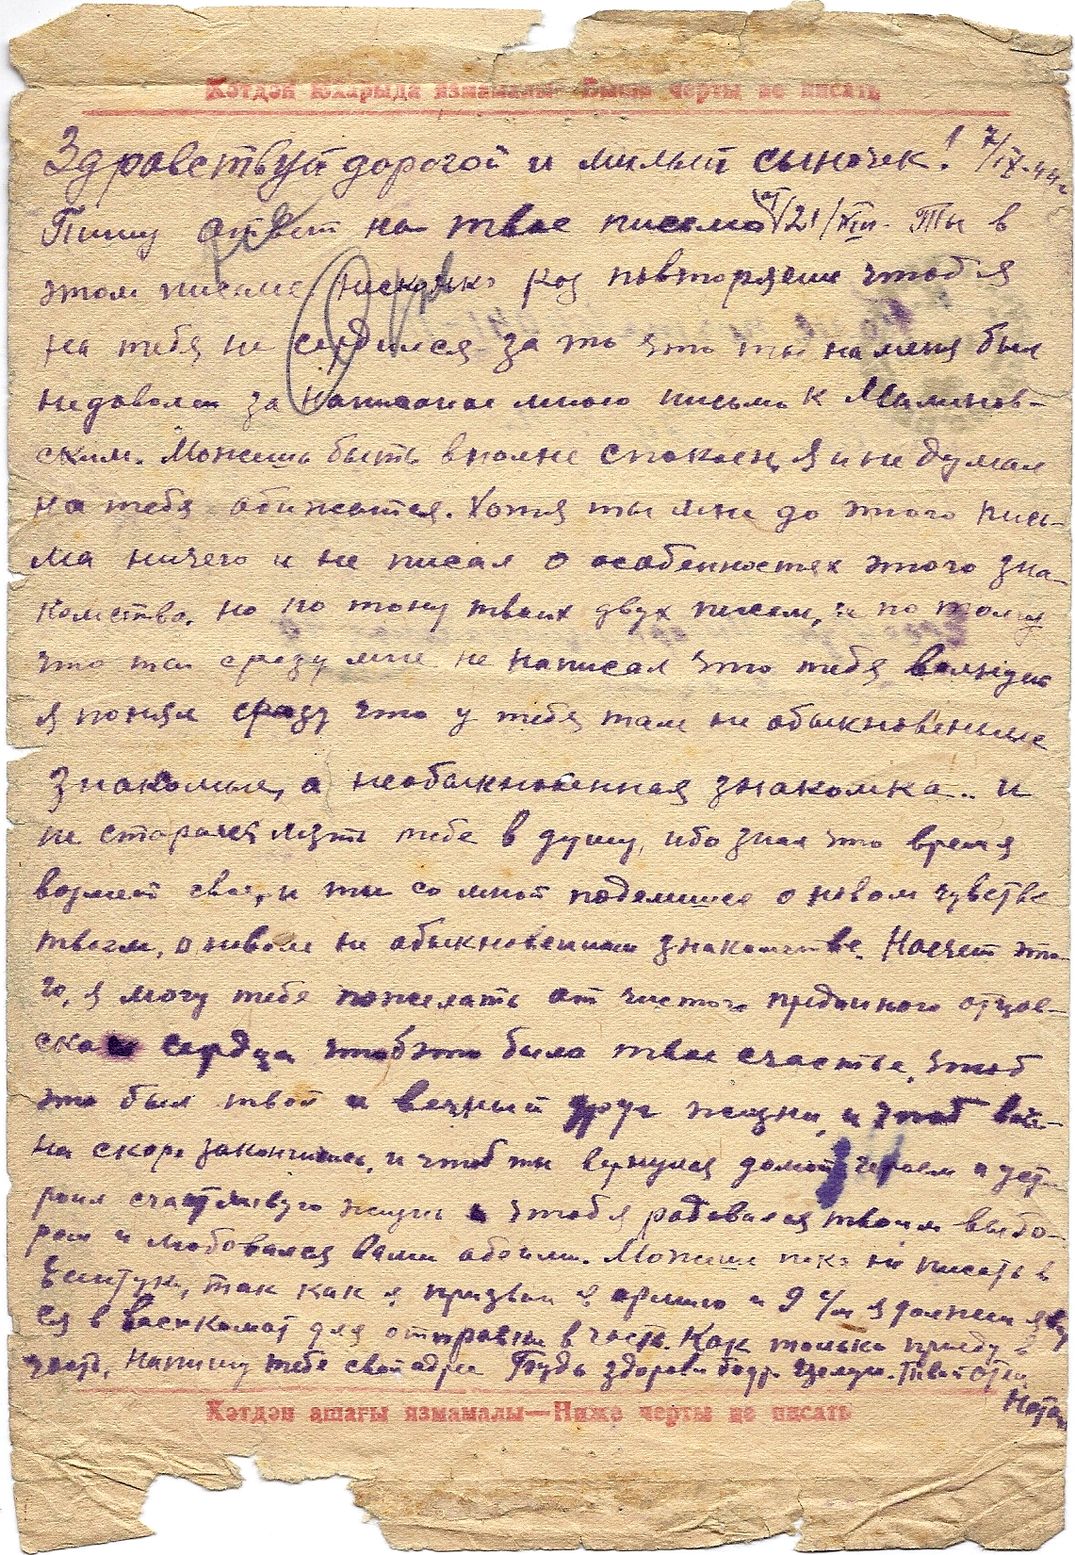 Хәтдән јухарыда язмамалы—Выше черты не писать
Здравствуй дорогой и милый сыночек! 7/IX-44г
Пишу ответ на твое письмо от 21/VIII. Ты в
этом письме несколько раз повторяешь чтоб я
на тебя не сердился за то что ты на меня был
недоволен за написанное мною письмо к Малинов-
ским. Можешь быть вполне спокоен, я и не думал
на тебя обижатся. Хотя ты мне до этого пись-
ма ничего и не писал о особенностях этого зна-
комства, но по тону твоих двух писем, и по тому
что ты сразу мне не написал что тебя волнует
я понял сразу что у тебя там не обыкновенные
знакомые, а необыкновенная знакомка.. и
не старался лезть тебе в душу, ибо знал что время
возмет свое, и ты со мной поделишся о новом чувстве
твоем, о новом не обыкновенном знакомстве. Насчет это-
го, я могу тебе пожелать от чистого преданного отцов-
ского сердца чтоб это было твое счастье, чтоб
это был твой и вечный друг жизни, и чтоб вой-
на скоро закончилась, и чтоб ты вернулся домой героем и уст-
роил счастливую жизнь и чтоб я радовался твоим выбо-
ром и любовался вами обоими. Можешь пока не писать в
Ессентуки, так как я призван в армию и 9 ч/м я должен яви
ся в военкомат для отправки в часть. Как только приеду в
часть, напишу тебе свой адрес. Будь здоров и бодр. Целую. Твой отец
Натан
Хәтдән ашағы язмамалы—Ниже черты не писать